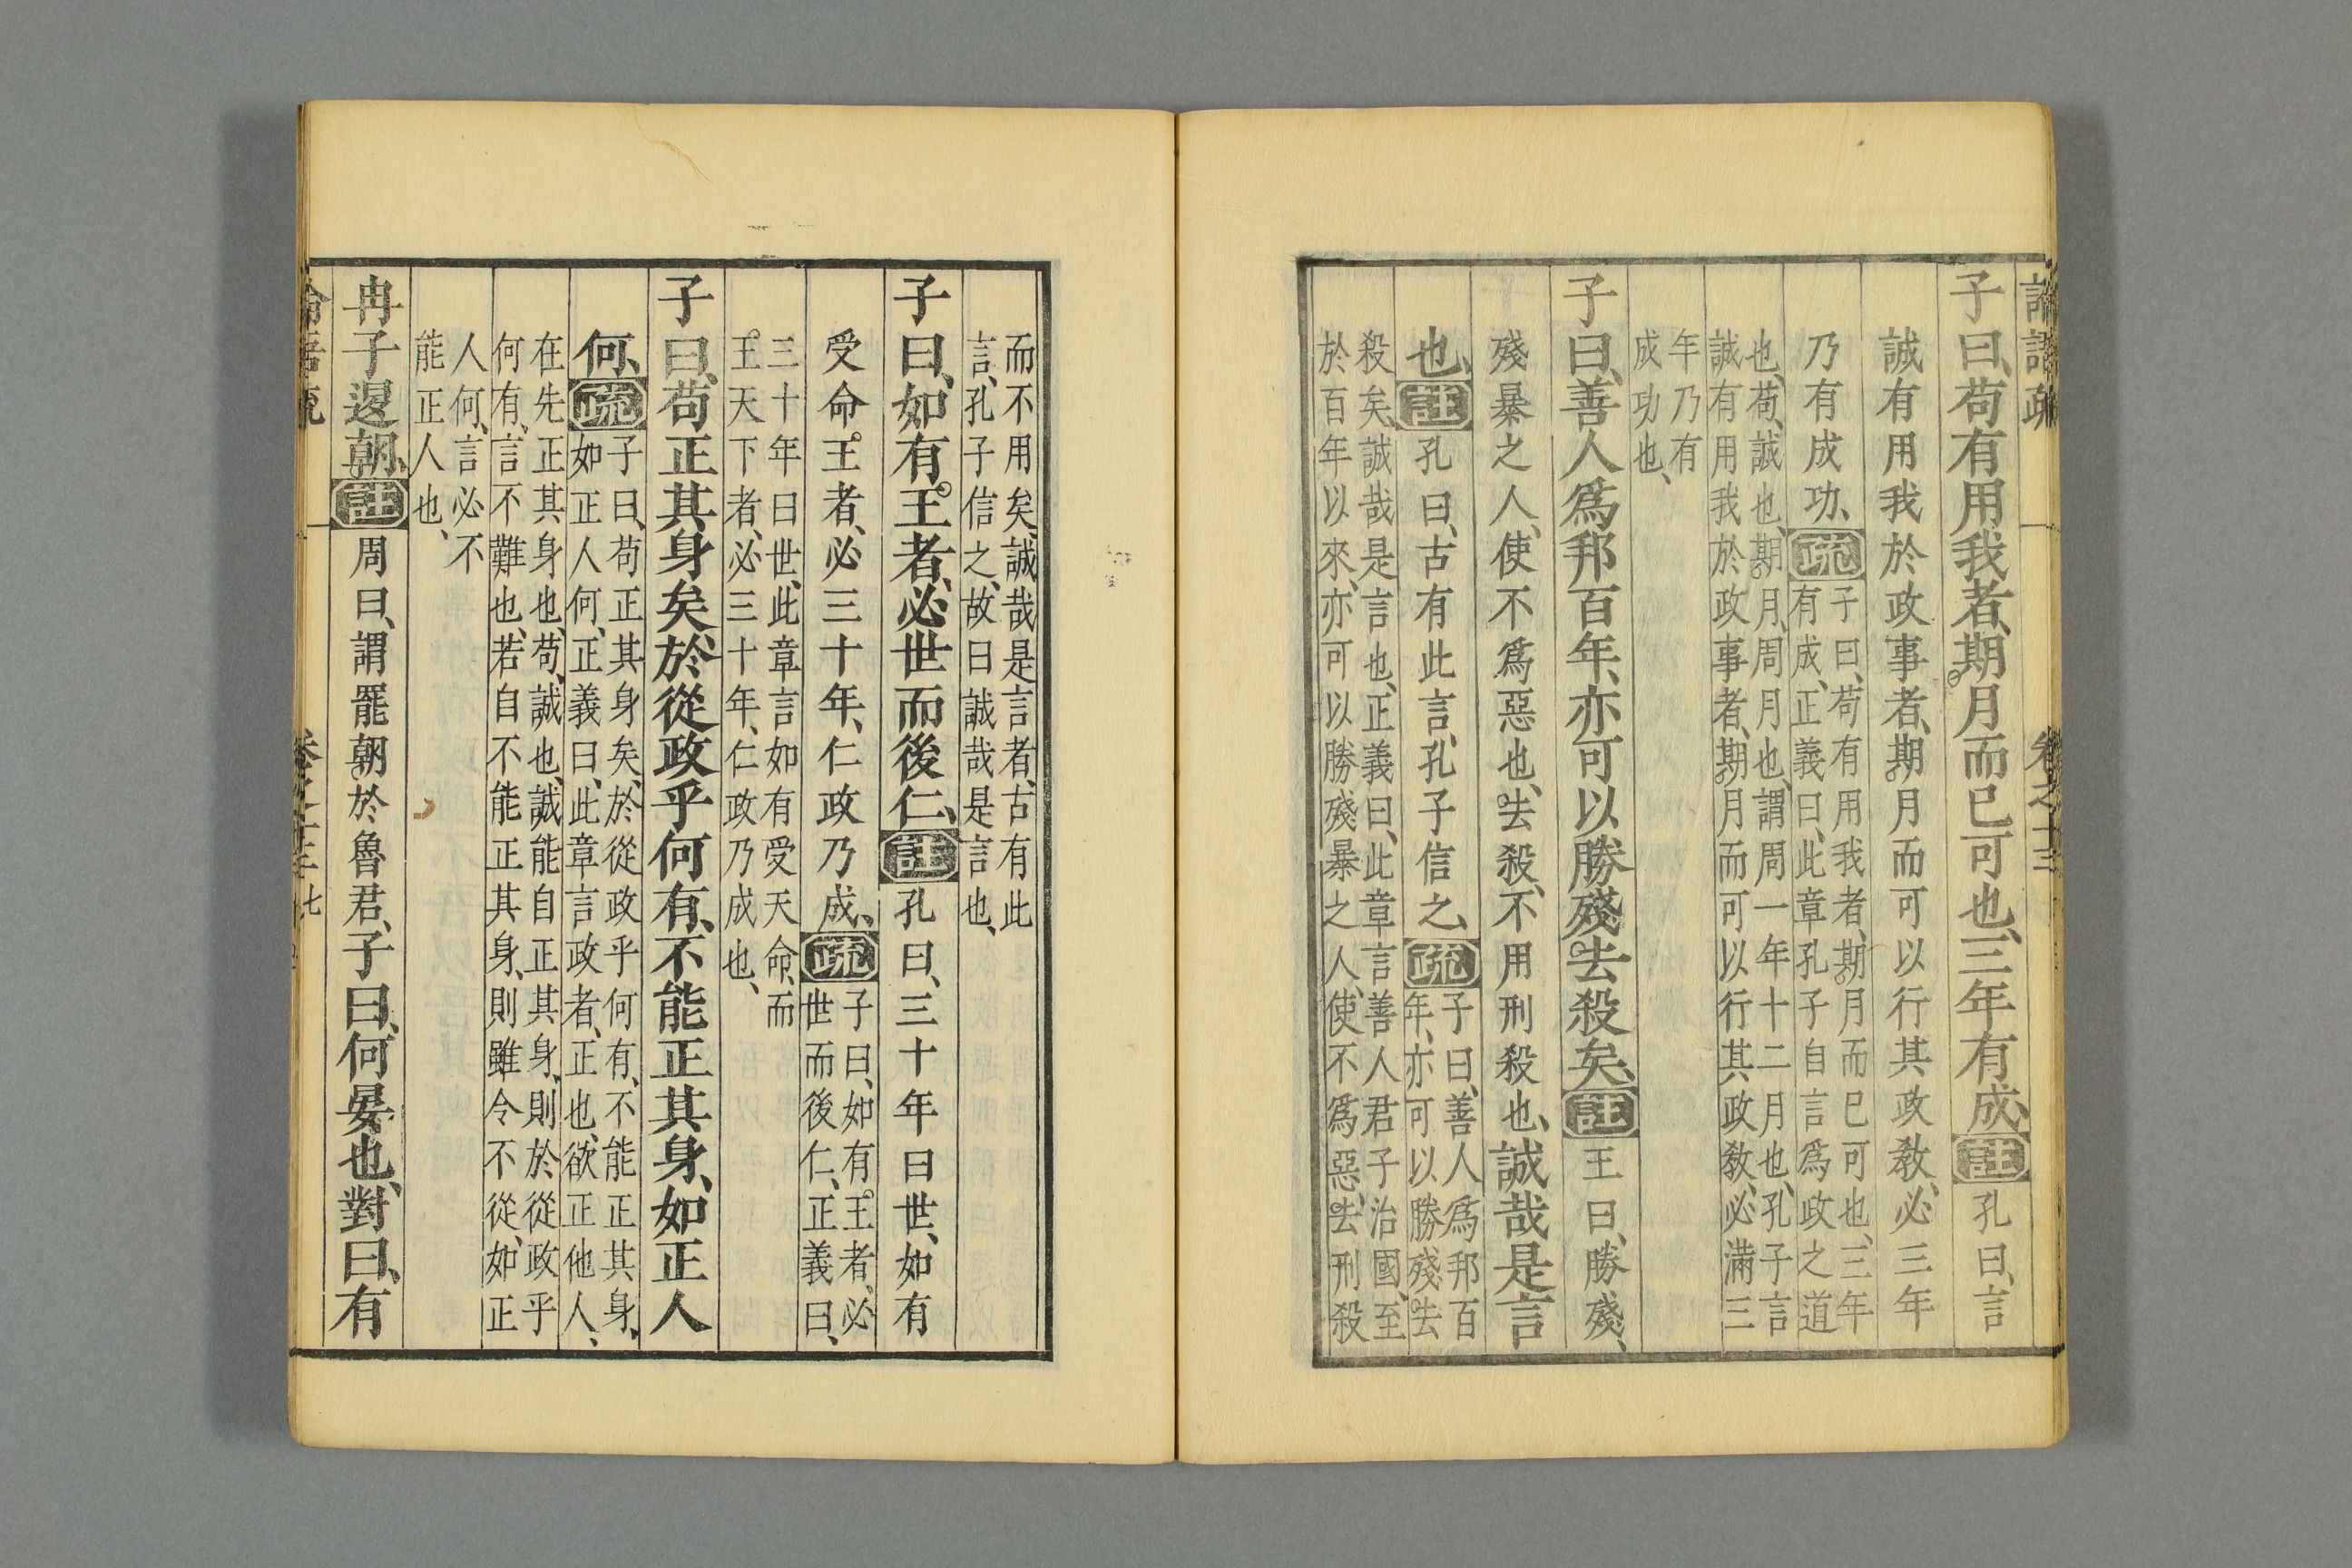 論語疏 卷之十三
子曰、苟有用我者、期月而已可也、三年有成、註孔曰、言
誠有用我於政事者、期月而可以行其政教、必三年
乃有成功、疏子曰、苟有用我者、期月而已可也、三年
有成、正義曰、此章孔子自言爲政之道
也、苟、誠也、期月、周月也、謂周一年十二月也、孔子言
誠有用我於政事者、期月而可以行其政教、必滿三
年乃有
成功也、
子曰、善人爲邦百年、亦可以勝殘去殺矣、註王曰、勝殘、
殘暴之人、使不爲惡也、去殺、不用刑殺也、誠哉是言
也、註孔曰、古有此言、孔子信之、疏子曰、善人爲邦百
年、亦可以勝殘去
殺矣、誠哉是言也、正義曰、此章言善人君子治國、至
於百年以來、亦可以勝殘暴之人、使不爲惡、去刑殺
而不用矣、誠哉是言者、古有此
言、孔子信之、故曰誠哉是言也、
子曰、如有王者、必世而後仁、註孔曰、三十年曰世、如有
受命王者、必三十年、仁政乃成、疏子曰、如有王者、必
世而後仁、正義曰、
三十年曰世、此章言如有受天命、而
王天下者、必三十年、仁政乃成也、
子曰、苟正其身矣、於從政乎何有、不能正其身、如正人
何、疏子曰、苟正其身矣、於從政乎何有、不能正其身、
如正人何、正義曰、此章言政者、正也、欲正他人、
在先正其身也、苟、誠也、誠能自正其身、則於從政乎
何有、言不難也、若自不能正其身、則雖令不從、如正
人何、言必不
能正人也、
冉子退朝、註周曰、謂罷朝於魯君、子曰、何晏也、對曰、有
論語疏 卷之十三 七